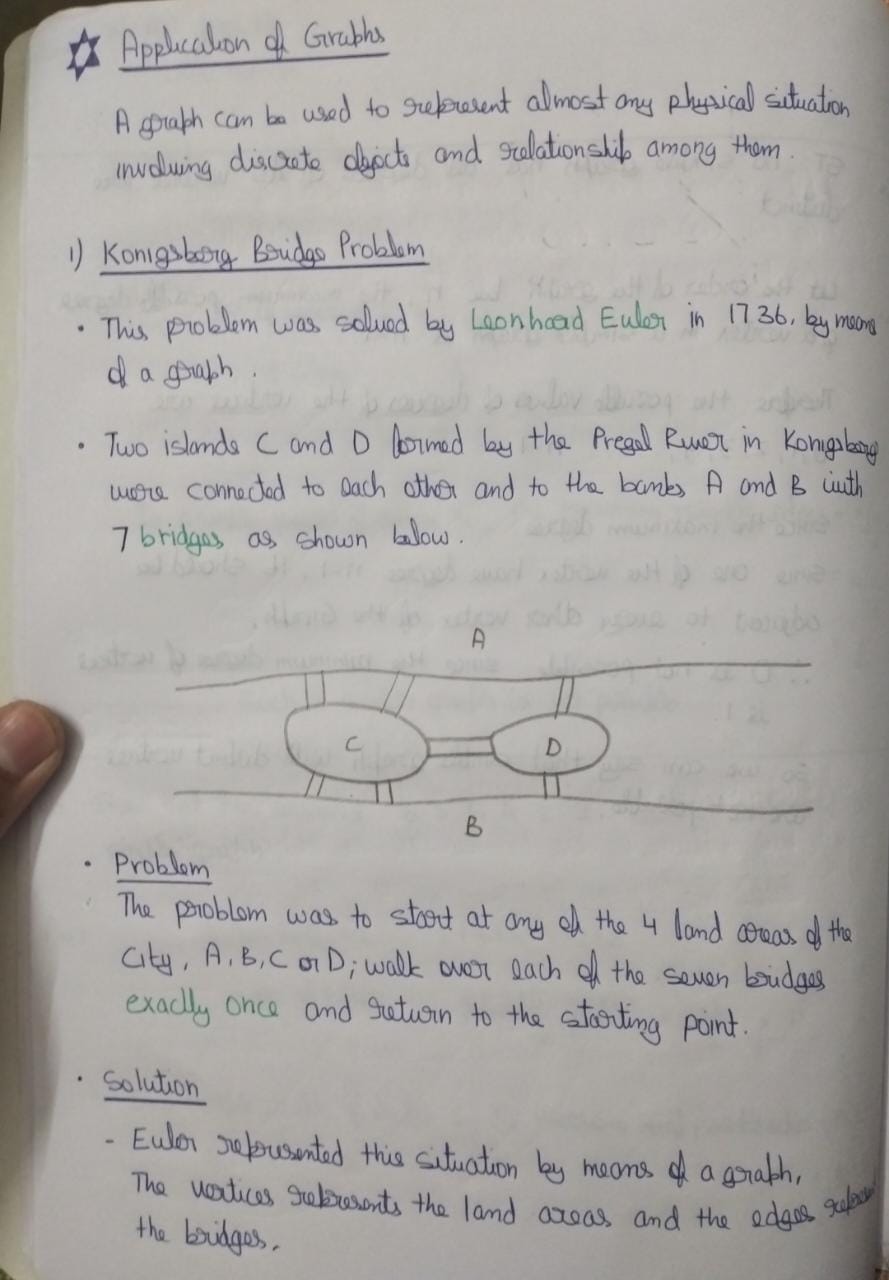 Application of Graphs
A graph can be used to represent almost any physical situation
involving discrete objects and relationship among them.
1) Konigsberg Bridge Problem
• This problem was solved by Leonhead Euler in 1736, by means
of a graph.
• Two islands C and D formed by the Pregel River in Konigsberg
were connected to each other and to the banks A and B with
7 bridges as shown below.
A
C D
B
• Problem
The problem was to start at any of the 4 land areas of the
City, A, B, C or D; walk over each of the seven bridges
exactly once and return to the starting point.
• Solution
- Euler represented this situation by means of a graph,
The vertices represents the land areas and the edges
the bridges.